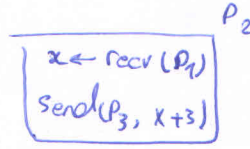 P₂
x ← recv(P₁)
send(P₃, x+3)